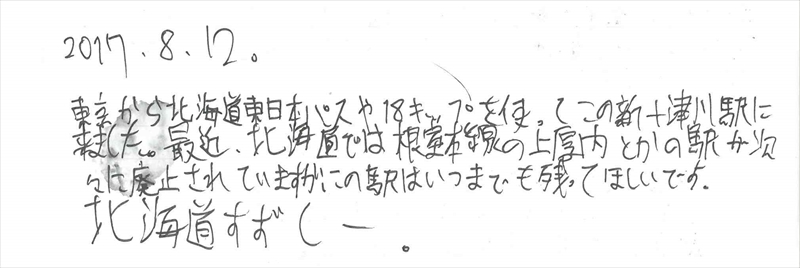 2017.8.12。
東京から北海道東日本パスや18キップを使ってこの新十津川駅に
来ました。最近、北海道では根室本線の上厚内とかの駅が次
々に廃止されていますがこの駅はいつまでも残ってほしいです。
北海道すずしー。